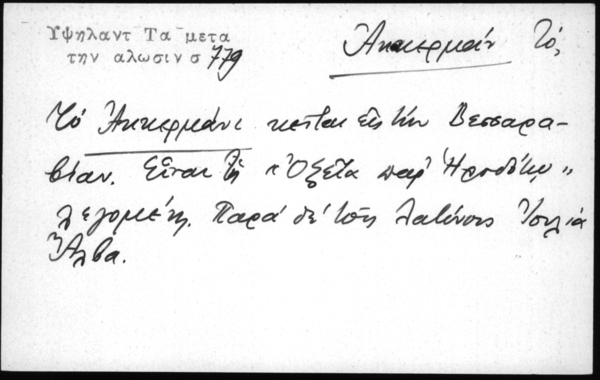 Υψηλαντ Τα μετα
την αλωσιν σ 779
Ἀκκερμάν Τό,
Τό Ἀκκερμάνι κεῖται εἰς τήν Βεσσαρα-
βίαν. Εἶναι ἡ "Ὀξεῖα παρ' Ἡροδότῳ"
λεγομένη. Παρά δέ τοῖς Λατίνοις Ἰουλία
Ἄλβα.